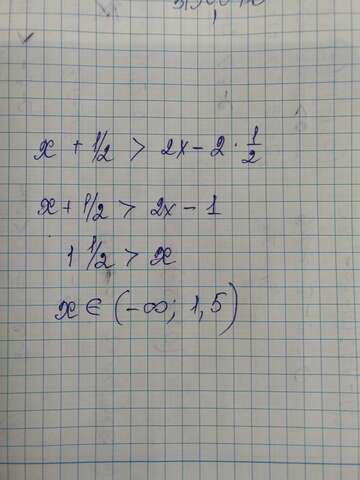 x + 1/2 > 2x - 2 · 1/2
x + 1/2 > 2x - 1
1 1/2 > x
x ∈ (-∞; 1,5)